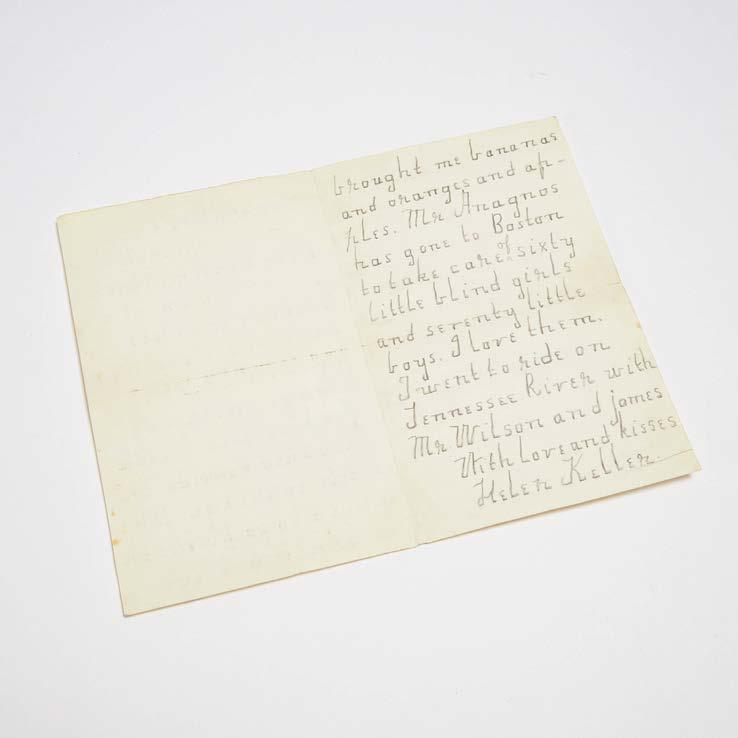 brought me bananas
and oranges and ap-
ples. Mr Anagnos
has gone to Boston
to take care of sixty
little blind girls
and seventy little
boys. I love them.
I went to ride on
Tennessee River with
Mr. Wilson and james
With love and kisses
Helen Keller.